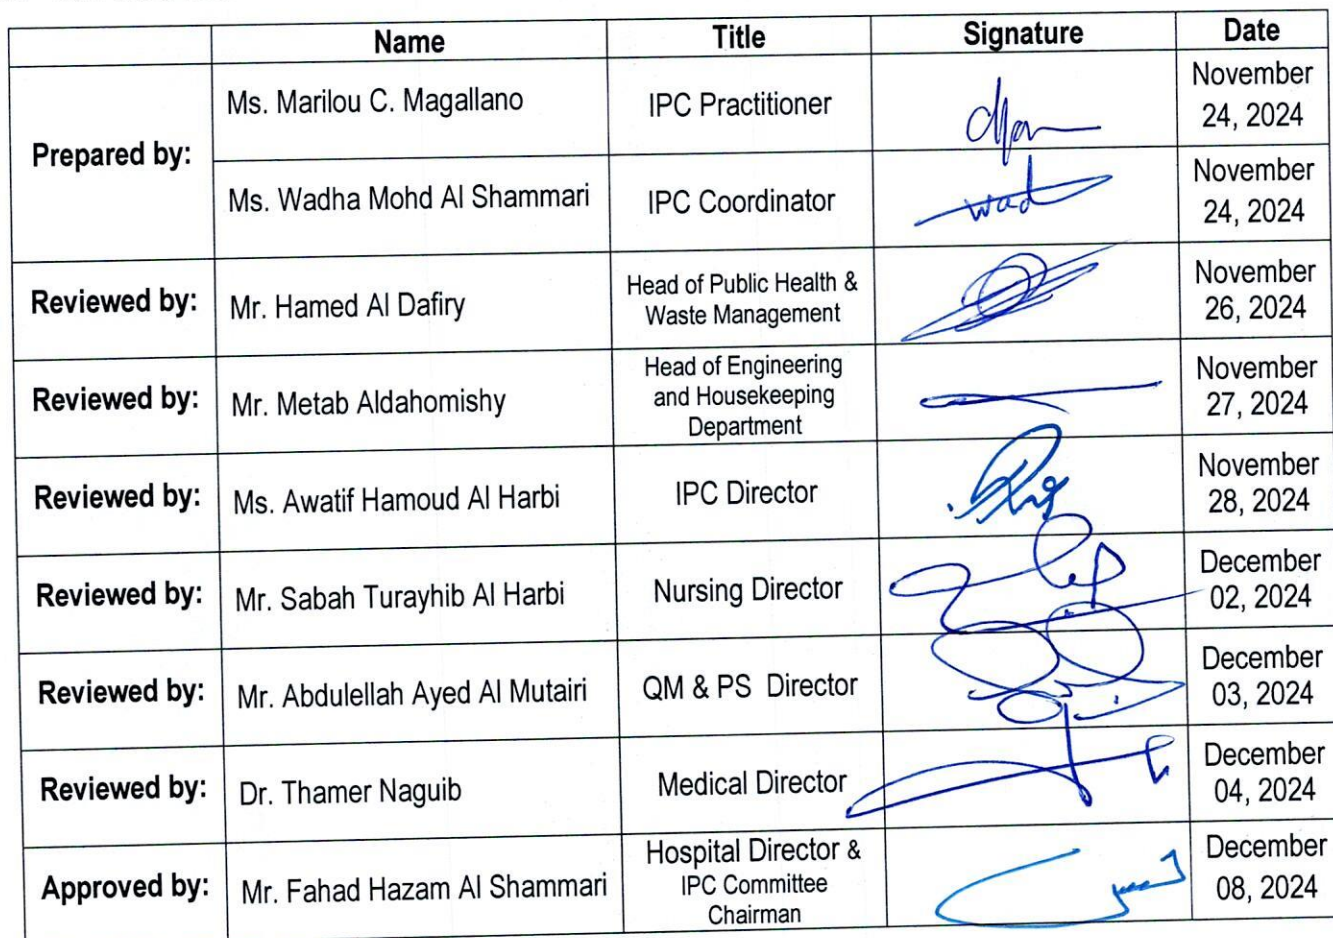 Name Title Signature Date
Prepared by:
Ms. Marilou C. Magallano IPC Practitioner November
24, 2024
Ms. Wadha Mohd Al Shammari IPC Coordinator wad November
24, 2024
Reviewed by: Mr. Hamed Al Dafiry Head of Public Health &
Waste Management November
26, 2024
Reviewed by: Mr. Metab Aldahomishy Head of Engineering
and Housekeeping
Department November
27, 2024
Reviewed by: Ms. Awatif Hamoud Al Harbi IPC Director November
28, 2024
Reviewed by: Mr. Sabah Turayhib Al Harbi Nursing Director December
02, 2024
Reviewed by: Mr. Abdulellah Ayed Al Mutairi QM & PS Director December
03, 2024
Reviewed by: Dr. Thamer Naguib Medical Director December
04, 2024
Approved by: Mr. Fahad Hazam Al Shammari Hospital Director &
IPC Committee
Chairman December
08, 2024